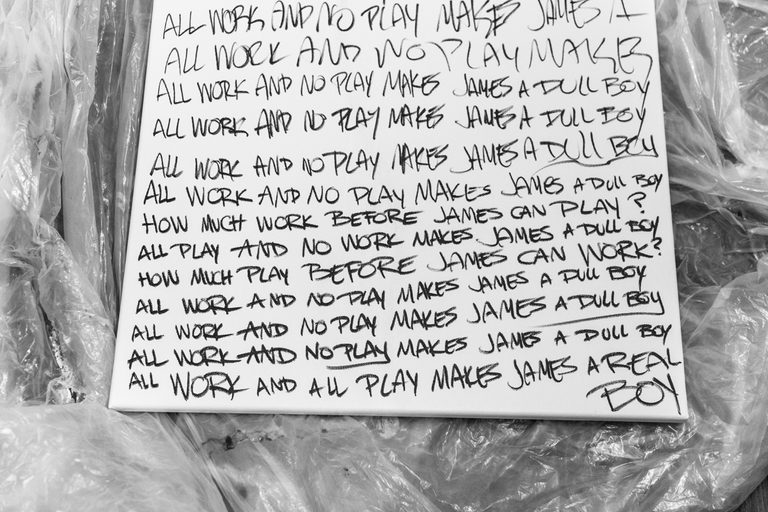 ALL WORK AND NO PLAY MAKES JAMES A
ALL WORK AND NO PLAY MAKES
ALL WORK AND NO PLAY MAKES JAMES A DULL BOY
ALL WORK AND NO PLAY MAKES JAMES A DULL BOY
ALL WORK AND NO PLAY MAKES JAMES A DULL BOY
ALL WORK AND NO PLAY MAKES JAMES A DULL BOY
HOW MUCH WORK BEFORE JAMES CAN PLAY?
ALL PLAY AND NO WORK MAKES JAMES A DULL BOY
HOW MUCH PLAY BEFORE JAMES CAN WORK?
ALL WORK AND NO PLAY MAKES JAMES A DULL BOY
ALL WORK AND NO PLAY MAKES JAMES A DULL BOY
ALL WORK AND NO PLAY MAKES JAMES A DULL BOY
ALL WORK AND ALL PLAY MAKES JAMES A REAL
BOY